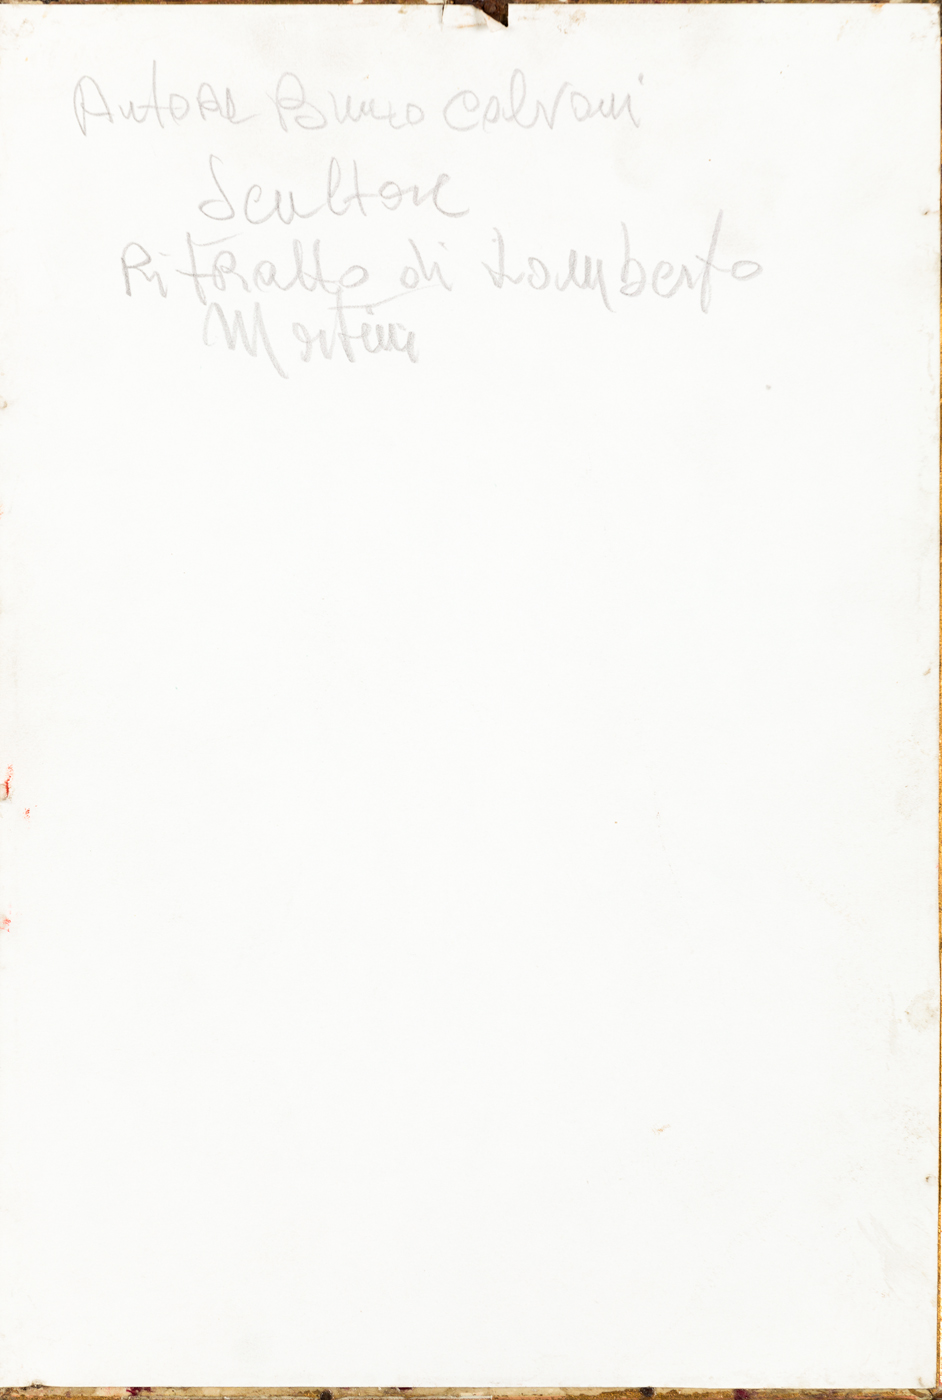 Autore Bruno Calvani
Scultore
Ritratto di Lamberto
Martini